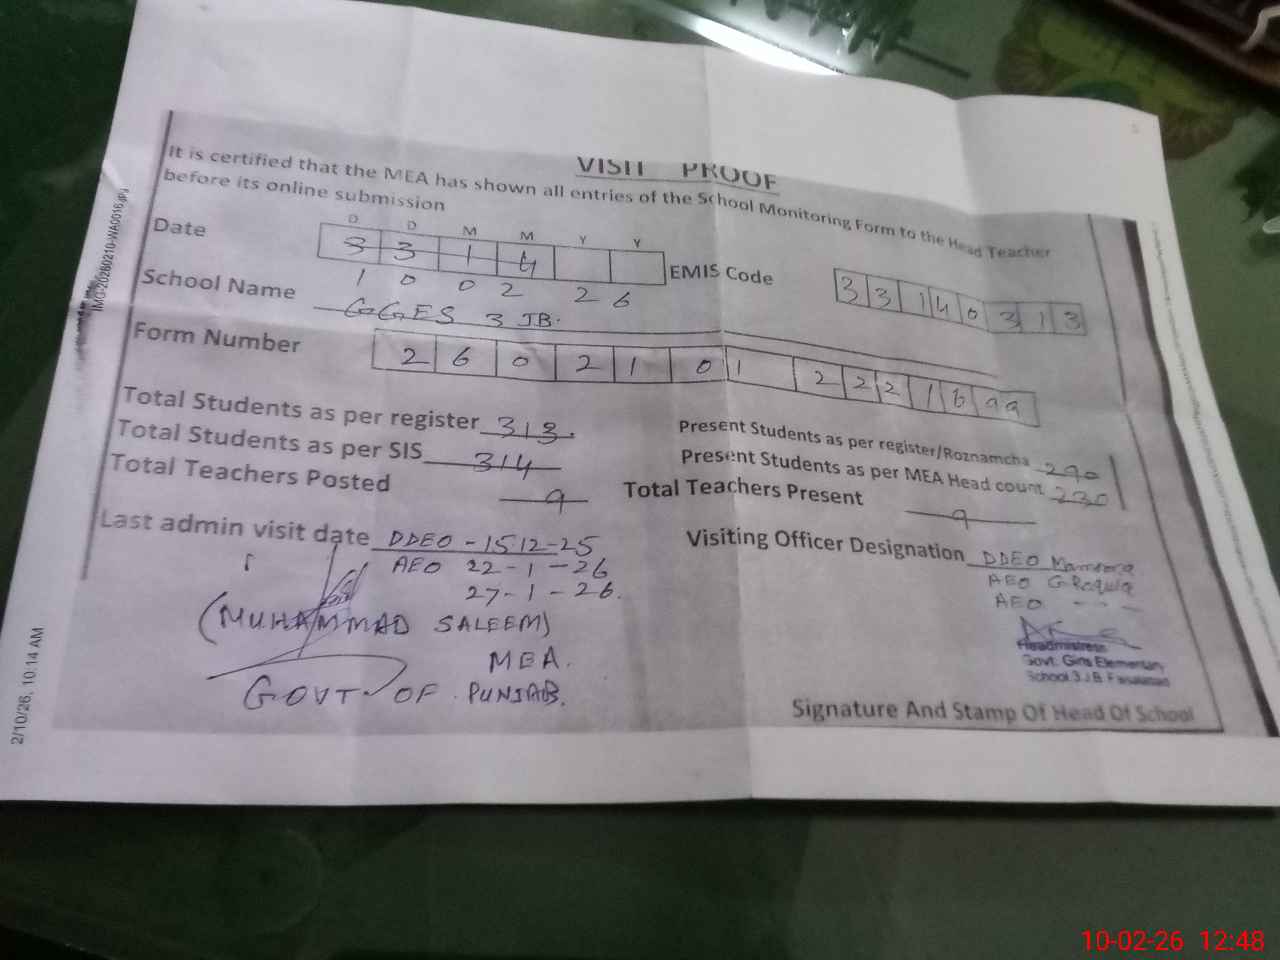 VISIT PROOF
It is certified that the MEA has shown all entries of the School Monitoring Form to the Head Teacher
before its online submission
D D M M Y Y
Date 3 3 1 4 EMIS Code 3 3 1 4 0 3 1 3
1 0 0 2 2 6
School Name GGES 3 JB.
Form Number 2 6 0 2 1 0 1 2 2 2 1 6 9 9
Total Students as per register 313. Present Students as per register/Roznamcha 290
Total Students as per SIS 314 Present Students as per MEA Head count 230
Total Teachers Posted 9 Total Teachers Present 9
Last admin visit date DDEO - 15-12-25 Visiting Officer Designation DDEO
AEO 22-1-26 AEO
27-1-26. AEO
(MUHAMMAD SALEEM)
MEA.
GOVT. OF PUNJAB.
Headmistress
Govt. Girls Elementary
School 3 J.B. Faisalabad
Signature And Stamp Of Head Of School
IMG-20260210-WA0016.jpg
2/10/26, 10:14 AM
10-02-26 12:48